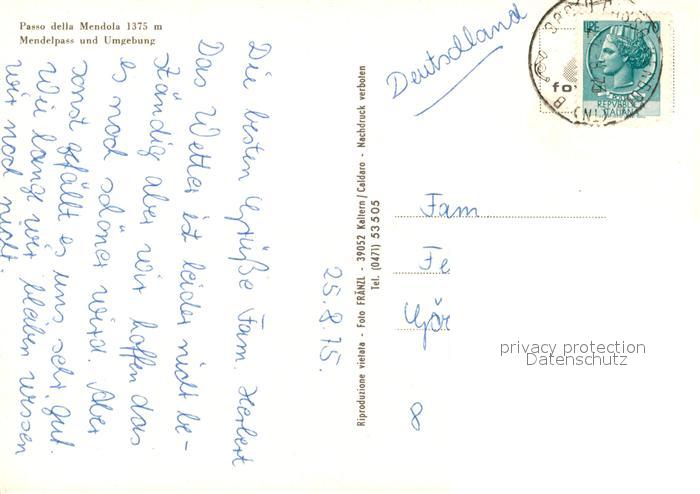 Passo della Mendola 1375 m
Mendelpass und Umgebung
Die besten Grüße Fam. Herbert
Das Wetter ist leider nicht be-
ständig aber wir hoffen das
es noch schöner wird. Aber
sonst gefällt es uns sehr gut.
Wie lange wir bleiben wissen
wir noch nicht.
25.8.75.
Riproduzione vietata - Foto FRÄNZL - 39052 Kaltern/Caldaro - Nachdruck verboten
Tel. (0471) 53505
Deutschland
LIRE 70
REPVBBLICA
ITALIANA
fo
Fam
Fe
Gör
8
privacy protection
Datenschutz